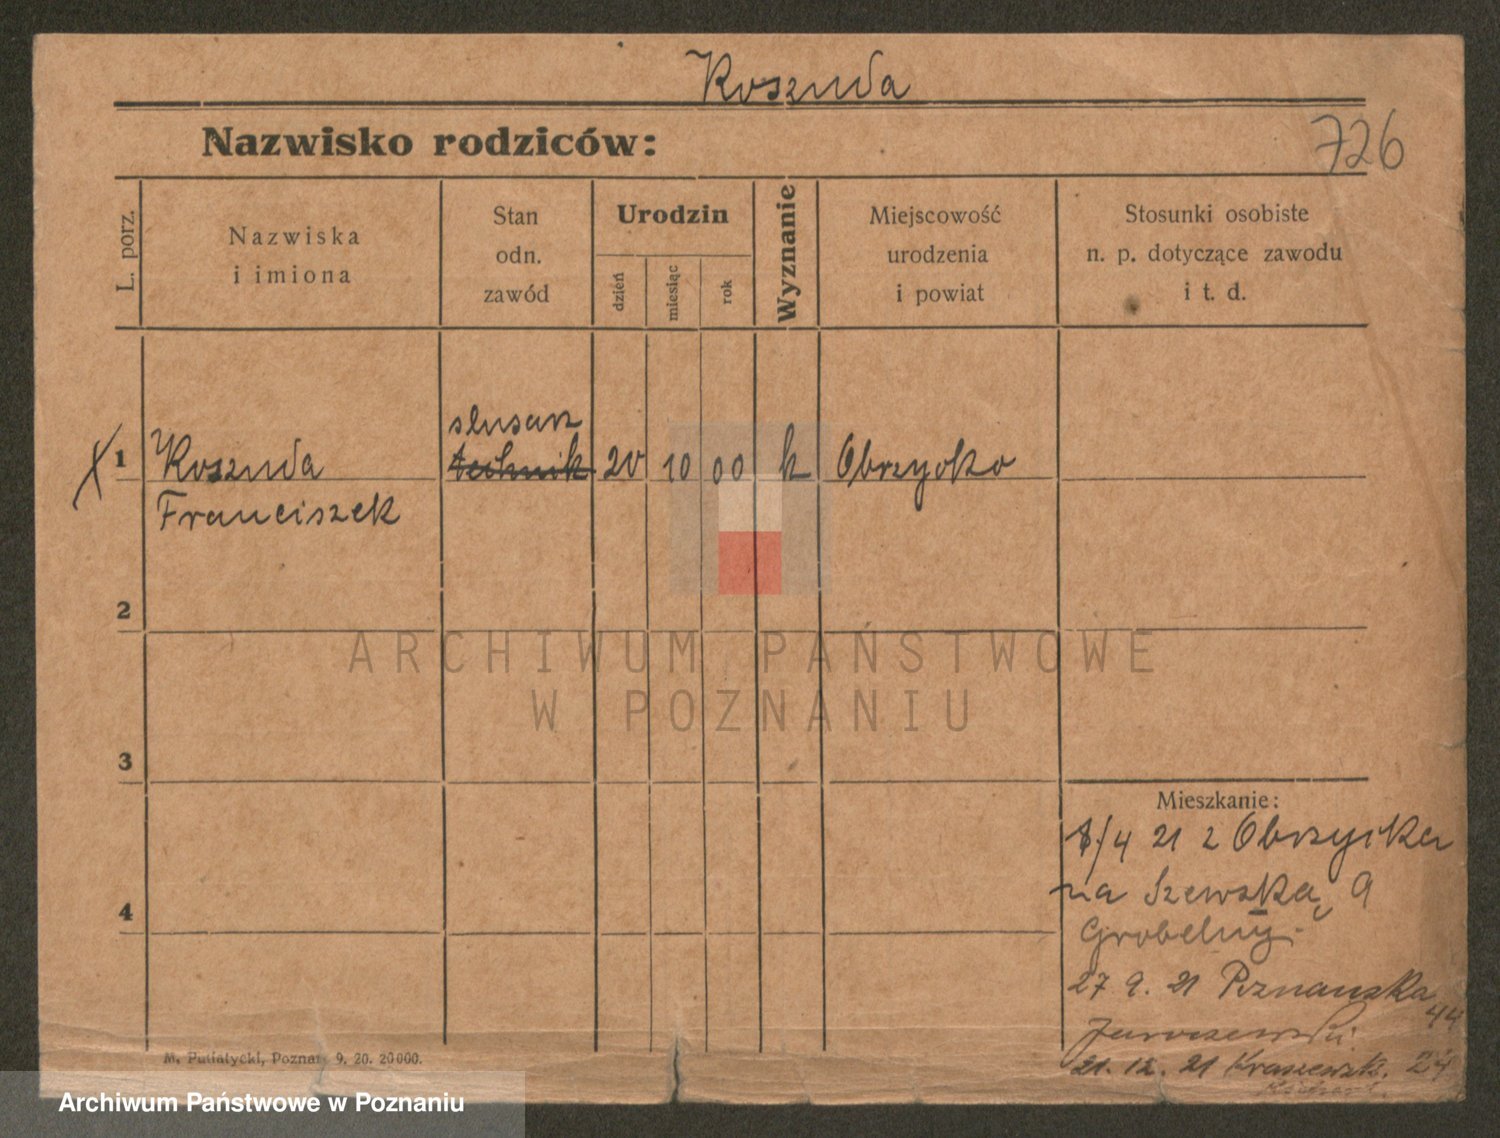 Koszuda
Nazwisko rodziców:
726
L. porz.
Nazwiska
i imiona
Stan
odn.
zawód
Urodzin
dzień
miesiąc
rok
Wyznanie
Miejscowość
urodzenia
i powiat
Stosunki osobiste
n. p. dotyczące zawodu
i t. d.
ślusarz
1 Koszuda technik 20 10 00 k Obrzycko
Franciszek
2
3
4
Mieszkanie:
/4 21 z Obrzycka
na Szewską 9
Grobelny
27 9. 21 Poznańska 44
21. 12. 21 Kraszewsk. 24
M. Putiatycki, Poznań 9. 20. 20000.
ARCHIWUM PAŃSTWOWE
W POZNANIU
Archiwum Państwowe w Poznaniu